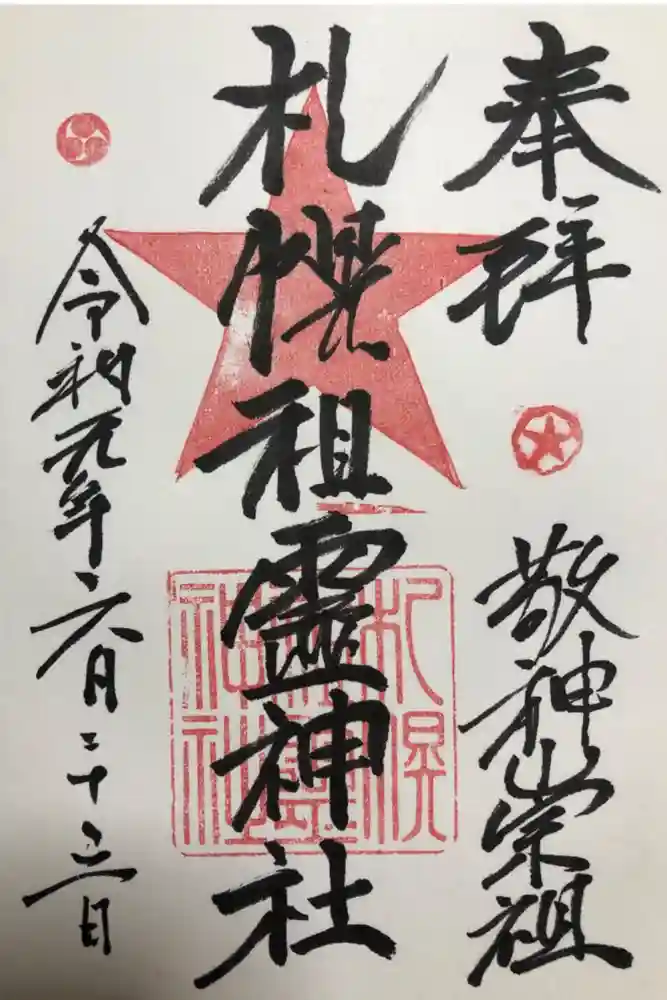 奉拝
敬神崇祖
札幌祖靈神社
札幌
祖靈
神社
令和元年六月二十三日